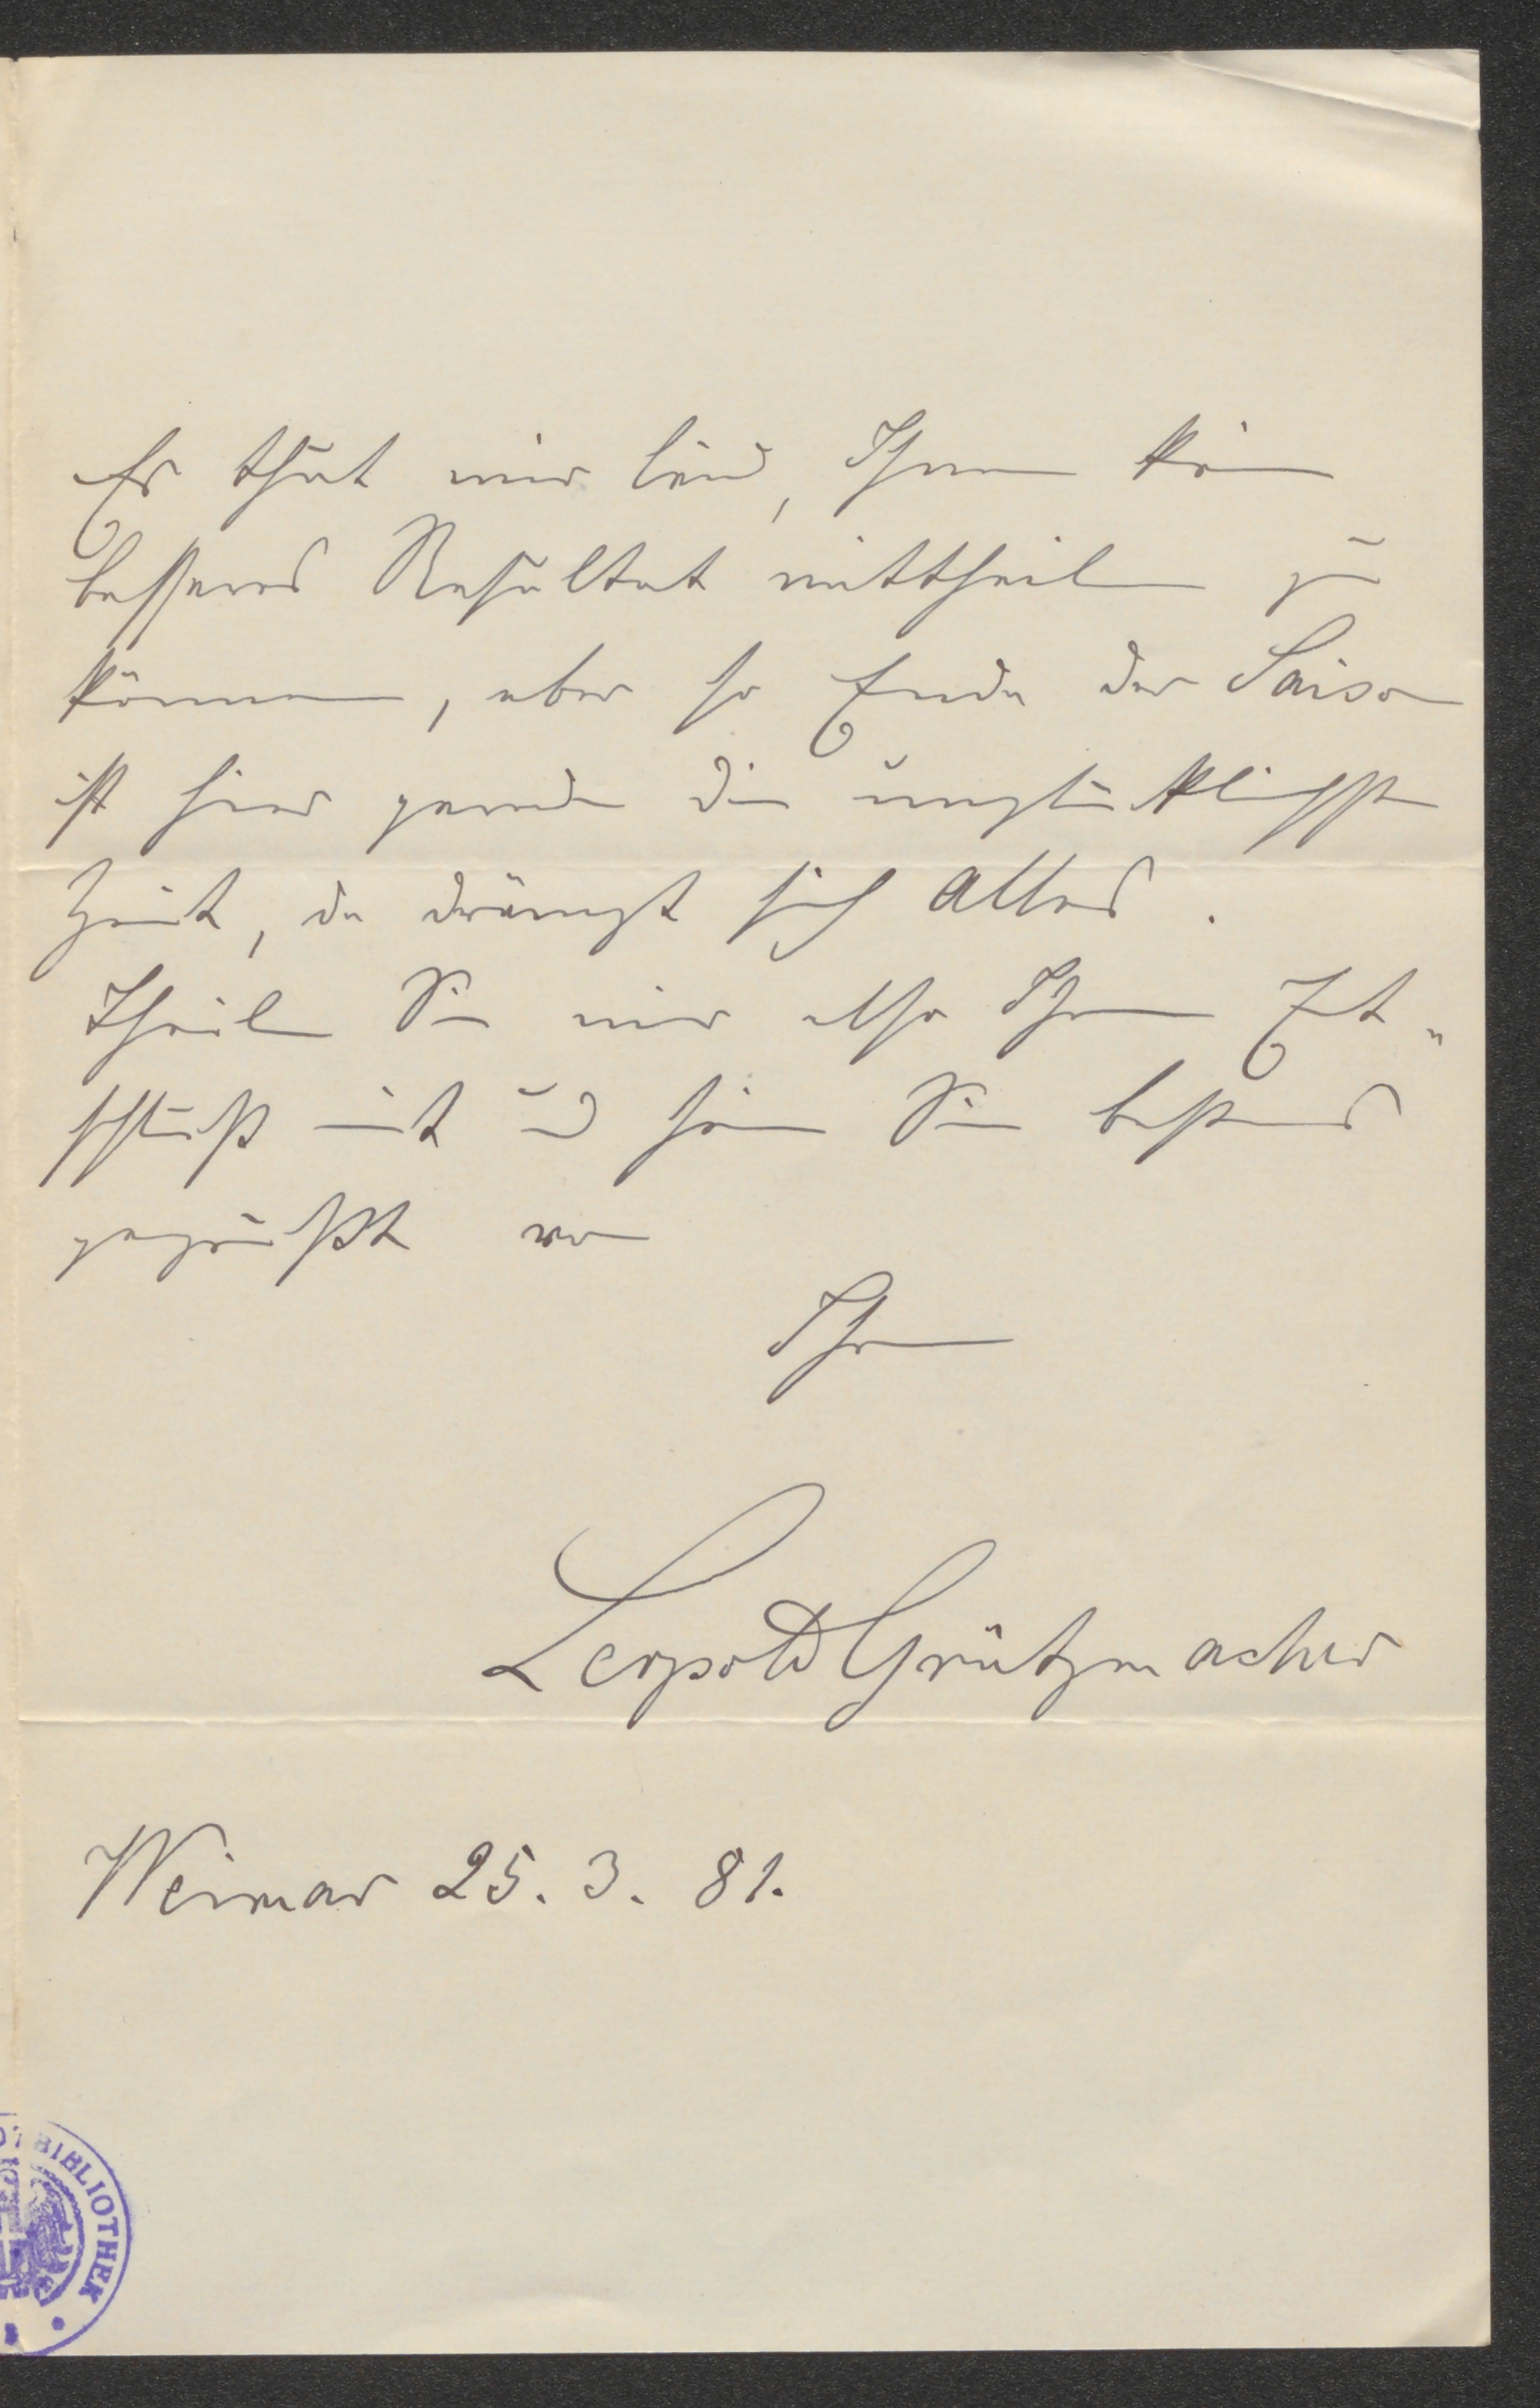 Es thut mir leid, Ihnen kein
besseres Resultat mittheilen zu
können, aber so Ende der Saison
ist hier gerade die unglücklichste
Zeit, da drängt sich alles.
Theilen Sie mir also Ihren Ent„
schluß mit und seien Sie bestens
gegrüßt von
Ihrem
Leopold Grützmacher
Weimar 25. 3. 81.
BIBLIOTHEK